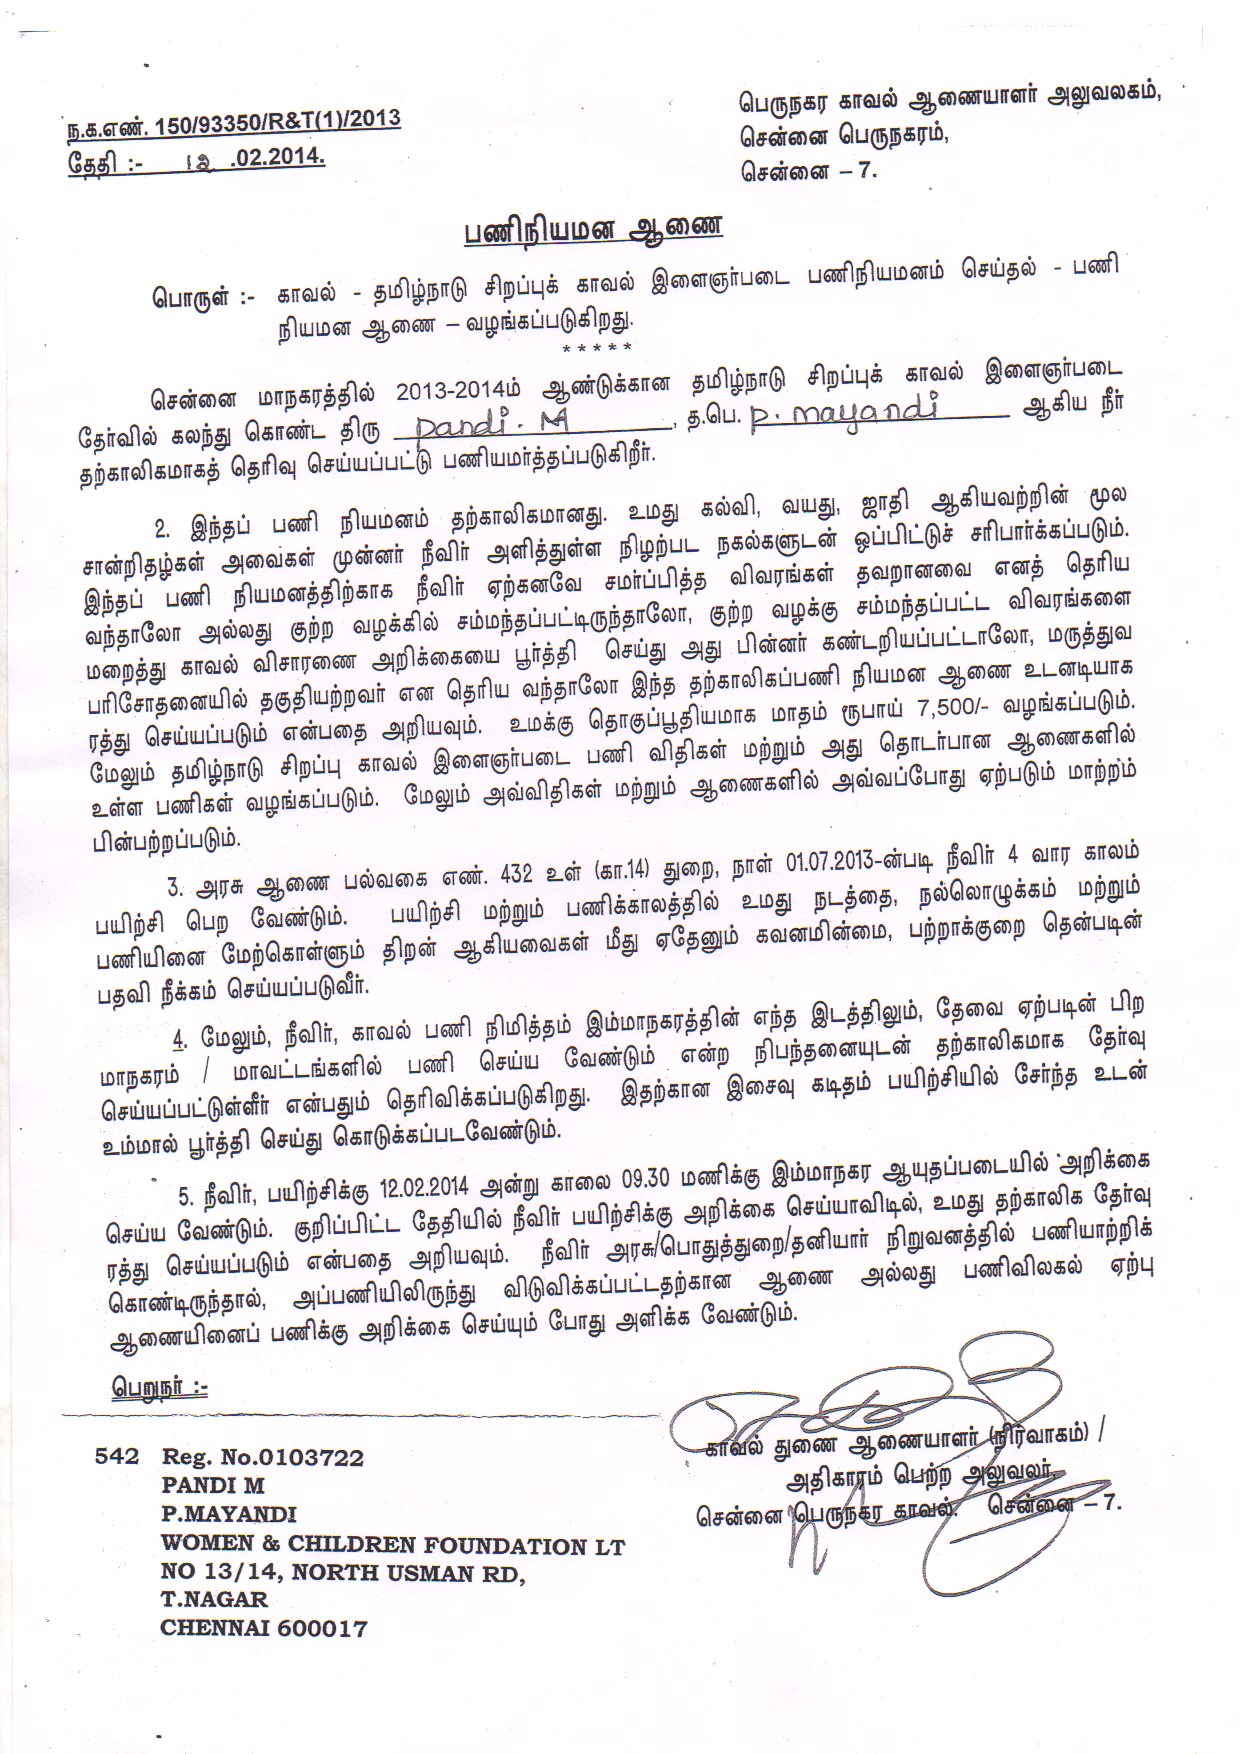 ந.க.எண். 150/93350/R&T(1)/2013
தேதி :- .02.2014.
பெருநகர காவல் ஆணையாளர் அலுவலகம்,
சென்னை பெருநகரம்,
சென்னை – 7.
பணிநியமன ஆணை
பொருள் :- காவல் - தமிழ்நாடு சிறப்புக் காவல் இளைஞர்படை பணிநியமனம் செய்தல் - பணி
நியமன ஆணை – வழங்கப்படுகிறது.
*****
சென்னை மாநகரத்தில் 2013-2014ம் ஆண்டுக்கான தமிழ்நாடு சிறப்புக் காவல் இளைஞர்படை
தேர்வில் கலந்து கொண்ட திரு pandi. M, த.பெ. p. mayandi ஆகிய நீர்
தற்காலிகமாகத் தெரிவு செய்யப்பட்டு பணியமர்த்தப்படுகிறீர்.
2. இந்தப் பணி நியமனம் தற்காலிகமானது. உமது கல்வி, வயது, ஜாதி ஆகியவற்றின் மூல
சான்றிதழ்கள் அவைகள் முன்னர் நீவிர் அளித்துள்ள நிழற்பட நகல்களுடன் ஒப்பிட்டுச் சரிபார்க்கப்படும்.
இந்தப் பணி நியமனத்திற்காக நீவிர் ஏற்கனவே சமர்ப்பித்த விவரங்கள் தவறானவை எனத் தெரிய
வந்தாலோ அல்லது குற்ற வழக்கில் சம்மந்தப்பட்டிருந்தாலோ, குற்ற வழக்கு சம்மந்தப்பட்ட விவரங்களை
மறைத்து காவல் விசாரணை அறிக்கையை பூர்த்தி செய்து அது பின்னர் கண்டறியப்பட்டாலோ, மருத்துவ
பரிசோதனையில் தகுதியற்றவர் என தெரிய வந்தாலோ இந்த தற்காலிகப்பணி நியமன ஆணை உடனடியாக
ரத்து செய்யப்படும் என்பதை அறியவும். உமக்கு தொகுப்பூதியமாக மாதம் ரூபாய் 7,500/- வழங்கப்படும்.
மேலும் தமிழ்நாடு சிறப்பு காவல் இளைஞர்படை பணி விதிகள் மற்றும் அது தொடர்பான ஆணைகளில்
உள்ள பணிகள் வழங்கப்படும். மேலும் அவ்விதிகள் மற்றும் ஆணைகளில் அவ்வப்போது ஏற்படும் மாற்றம்
பின்பற்றப்படும்.
3. அரசு ஆணை பல்வகை எண். 432 உள் (கா.14) துறை, நாள் 01.07.2013-ன்படி நீவிர் 4 வார காலம்
பயிற்சி பெற வேண்டும். பயிற்சி மற்றும் பணிக்காலத்தில் உமது நடத்தை, நல்லொழுக்கம் மற்றும்
பணியினை மேற்கொள்ளும் திறன் ஆகியவைகள் மீது ஏதேனும் கவனமின்மை, பற்றாக்குறை தென்படின்
பதவி நீக்கம் செய்யப்படுவீர்.
4. மேலும், நீவிர், காவல் பணி நிமித்தம் இம்மாநகரத்தின் எந்த இடத்திலும், தேவை ஏற்படின் பிற
மாநகரம் / மாவட்டங்களில் பணி செய்ய வேண்டும் என்ற நிபந்தனையுடன் தற்காலிகமாக தேர்வு
செய்யப்பட்டுள்ளீர் என்பதும் தெரிவிக்கப்படுகிறது. இதற்கான இசைவு கடிதம் பயிற்சியில் சேர்ந்த உடன்
உம்மால் பூர்த்தி செய்து கொடுக்கப்படவேண்டும்.
5. நீவிர், பயிற்சிக்கு 12.02.2014 அன்று காலை 09.30 மணிக்கு இம்மாநகர ஆயுதப்படையில் அறிக்கை
செய்ய வேண்டும். குறிப்பிட்ட தேதியில் நீவிர் பயிற்சிக்கு அறிக்கை செய்யாவிடில், உமது தற்காலிக தேர்வு
ரத்து செய்யப்படும் என்பதை அறியவும். நீவிர் அரசு/பொதுத்துறை/தனியார் நிறுவனத்தில் பணியாற்றிக்
கொண்டிருந்தால், அப்பணியிலிருந்து விடுவிக்கப்பட்டதற்கான ஆணை அல்லது பணிவிலகல் ஏற்பு
ஆணையினைப் பணிக்கு அறிக்கை செய்யும் போது அளிக்க வேண்டும்.
பெறுநர் :-
காவல் துணை ஆணையாளர் (நிர்வாகம்) /
அதிகாரம் பெற்ற அலுவலர்,
சென்னை பெருநகர காவல். சென்னை – 7.
542 Reg. No.0103722
PANDI M
P.MAYANDI
WOMEN & CHILDREN FOUNDATION LT
NO 13/14, NORTH USMAN RD,
T.NAGAR
CHENNAI 600017